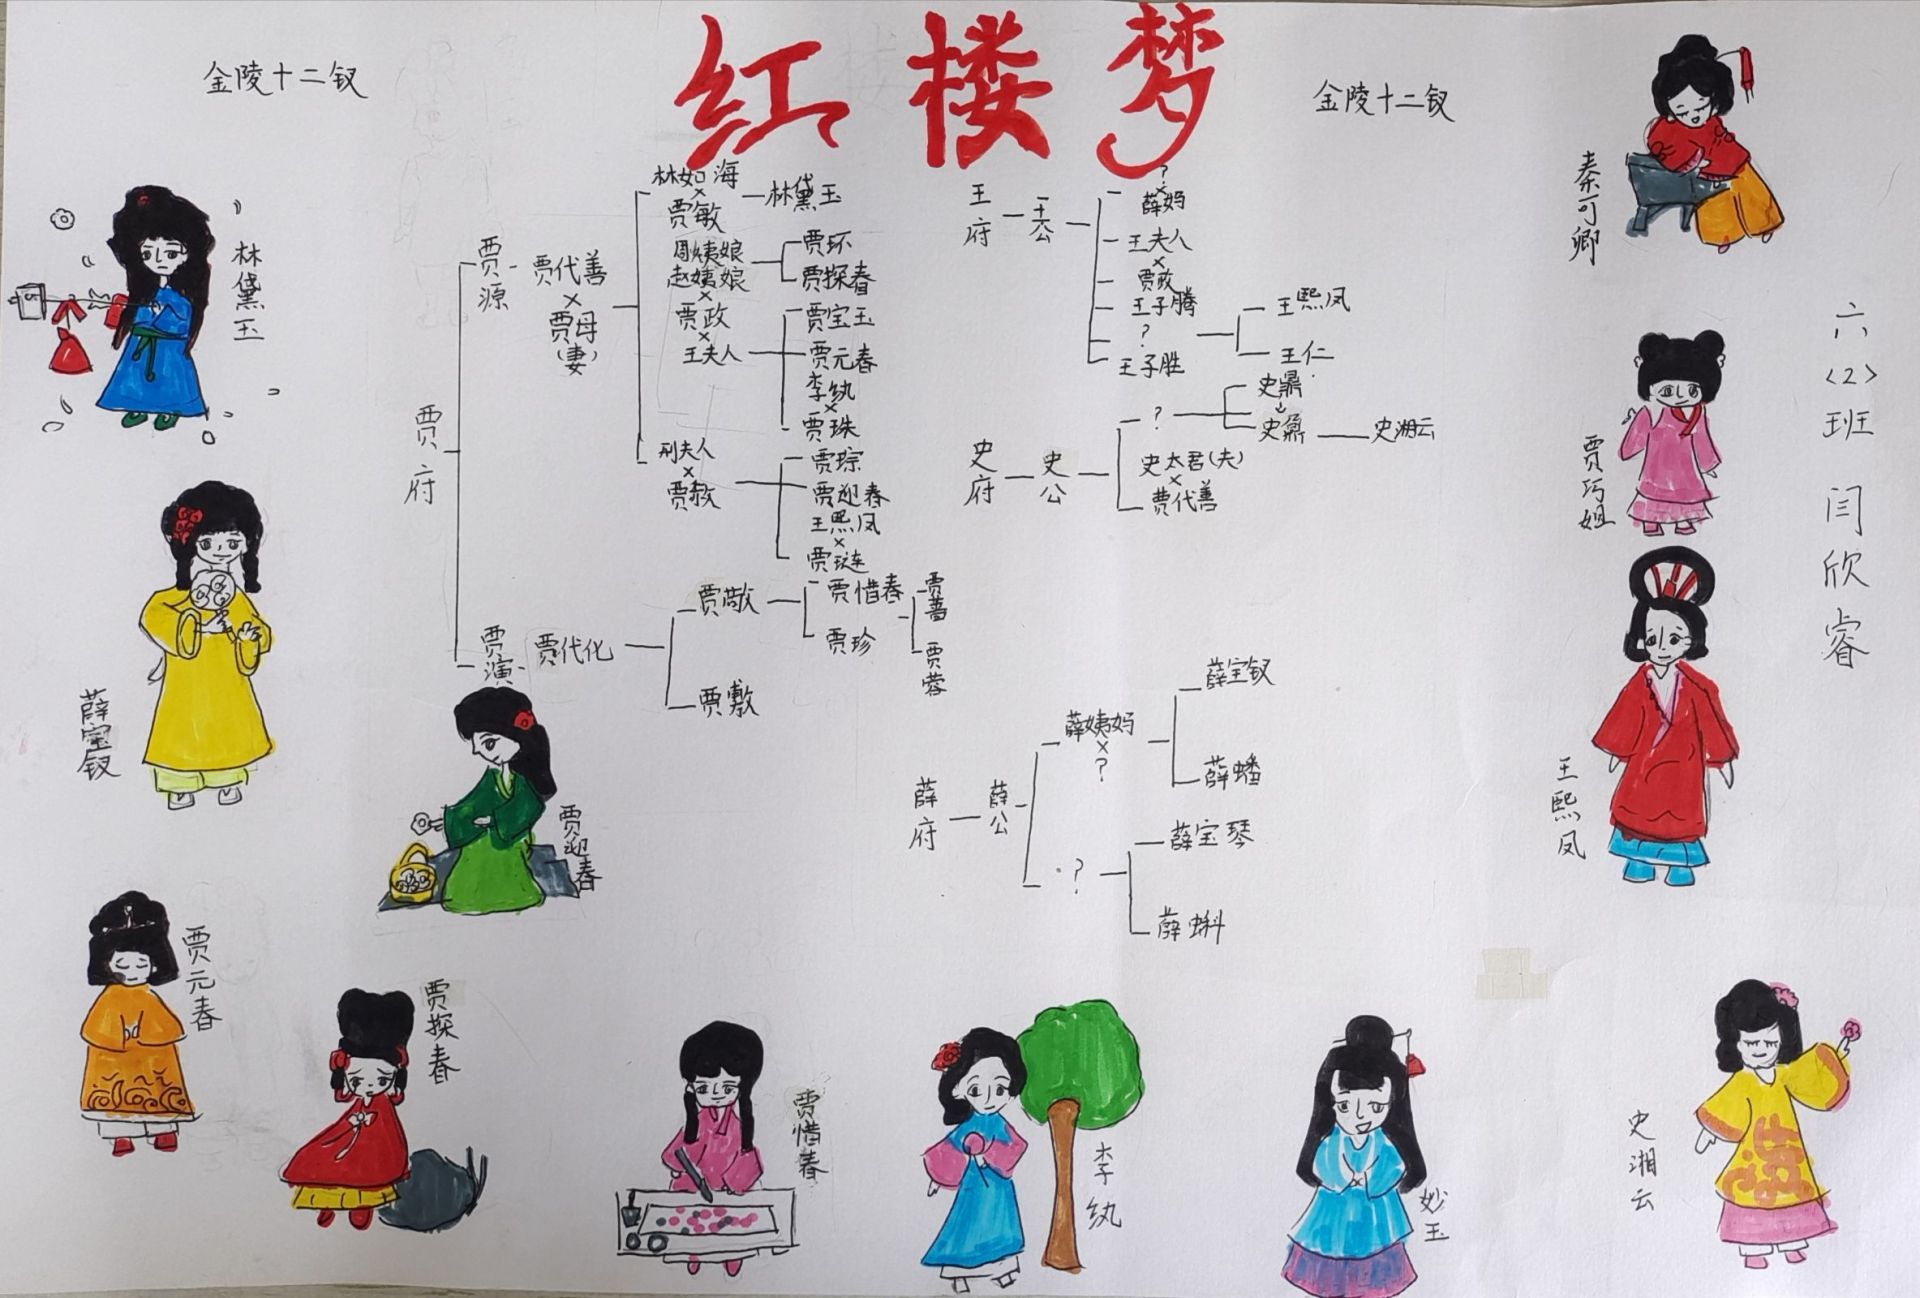 红楼梦
金陵十二钗
金陵十二钗
林黛玉
薛宝钗
贾元春
贾探春
贾迎春
贾惜春
李纨
妙玉
史湘云
王熙凤
贾巧姐
秦可卿
六<2>班 闫欣睿
贾府
贾源
贾代善
×
贾母
(妻)
林如海
×
贾敏
林黛玉
周姨娘
赵姨娘
×
贾政
×
王夫人
贾环
贾探春
贾宝玉
贾元春
李纨
×
贾珠
邢夫人
×
贾赦
贾琮
贾迎春
王熙凤
×
贾琏
贾演
贾代化
贾敬
贾敷
贾惜春
贾珍
贾蔷
贾蓉
王府
王公
?
×
薛妈
王夫人
×
贾政
王子腾
?
王子胜
王熙凤
王仁
史府
史公
?
史鼎
史鼐
史湘云
史太君(夫)
×
贾代善
薛府
薛公
薛姨妈
×
?
薛宝钗
薛蟠
?
薛宝琴
薛蝌